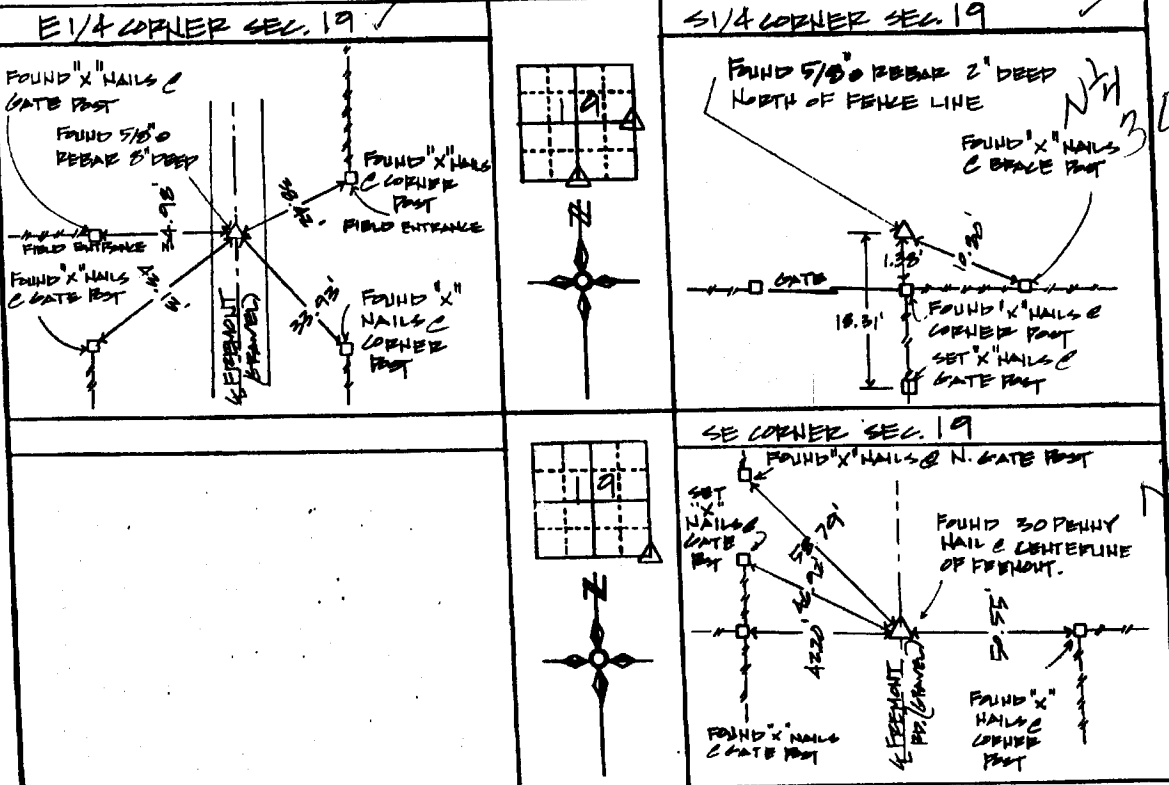 E 1/4 CORNER SEC. 19 ✓
FOUND "X" NAILS @
GATE POST
FOUND 5/8"ø
REBAR 8" DEEP
FOUND "X" NAILS
@ CORNER
POST
FIELD ENTRANCE
38.42'
34.98'
FIELD ENTRANCE
FOUND "X" NAILS
@ GATE POST
43.13'
33.93'
FOUND "X"
NAILS @
CORNER
POST
℄ FREMONT
(GRAVEL)
19
N
S 1/4 CORNER SEC. 19 ✓
FOUND 5/8"ø REBAR 2" DEEP
NORTH OF FENCE LINE
N 1/4
FOUND "X" NAILS
@ BRACE POST
10.30'
1.38'
GATE
18.31'
FOUND "X" NAILS @
CORNER POST
SET "X" NAILS @
GATE POST
19
N
SE CORNER SEC. 19
FOUND "X" NAILS @ N. GATE POST
SET
"X"
NAILS @
GATE
POST
58.79'
46.92'
FOUND 30 PENNY
NAIL @ CENTERLINE
OF FREMONT.
42.20'
50.55'
℄ FREMONT
RD. (GRAVEL)
FOUND "X" NAILS
@ GATE POST
FOUND "X"
NAILS @
CORNER
POST